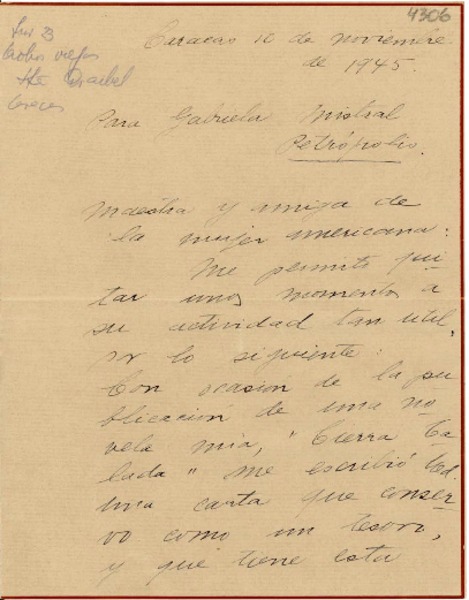 4306
Caracas 10 de noviembre
de 1945.
Para Gabriela Mistral
Petrópolis.
Maestra y amiga de
la mujer americana:
Me permito qui-
tar unos momentos a
su actividad tan util,
por lo siguiente:
Con ocasion de la pu
blicación de una no
vela mia, "Tierra Ta
lada" me escribió Ud.
una carta que conser-
vo como un tesoro,
y que tiene esta